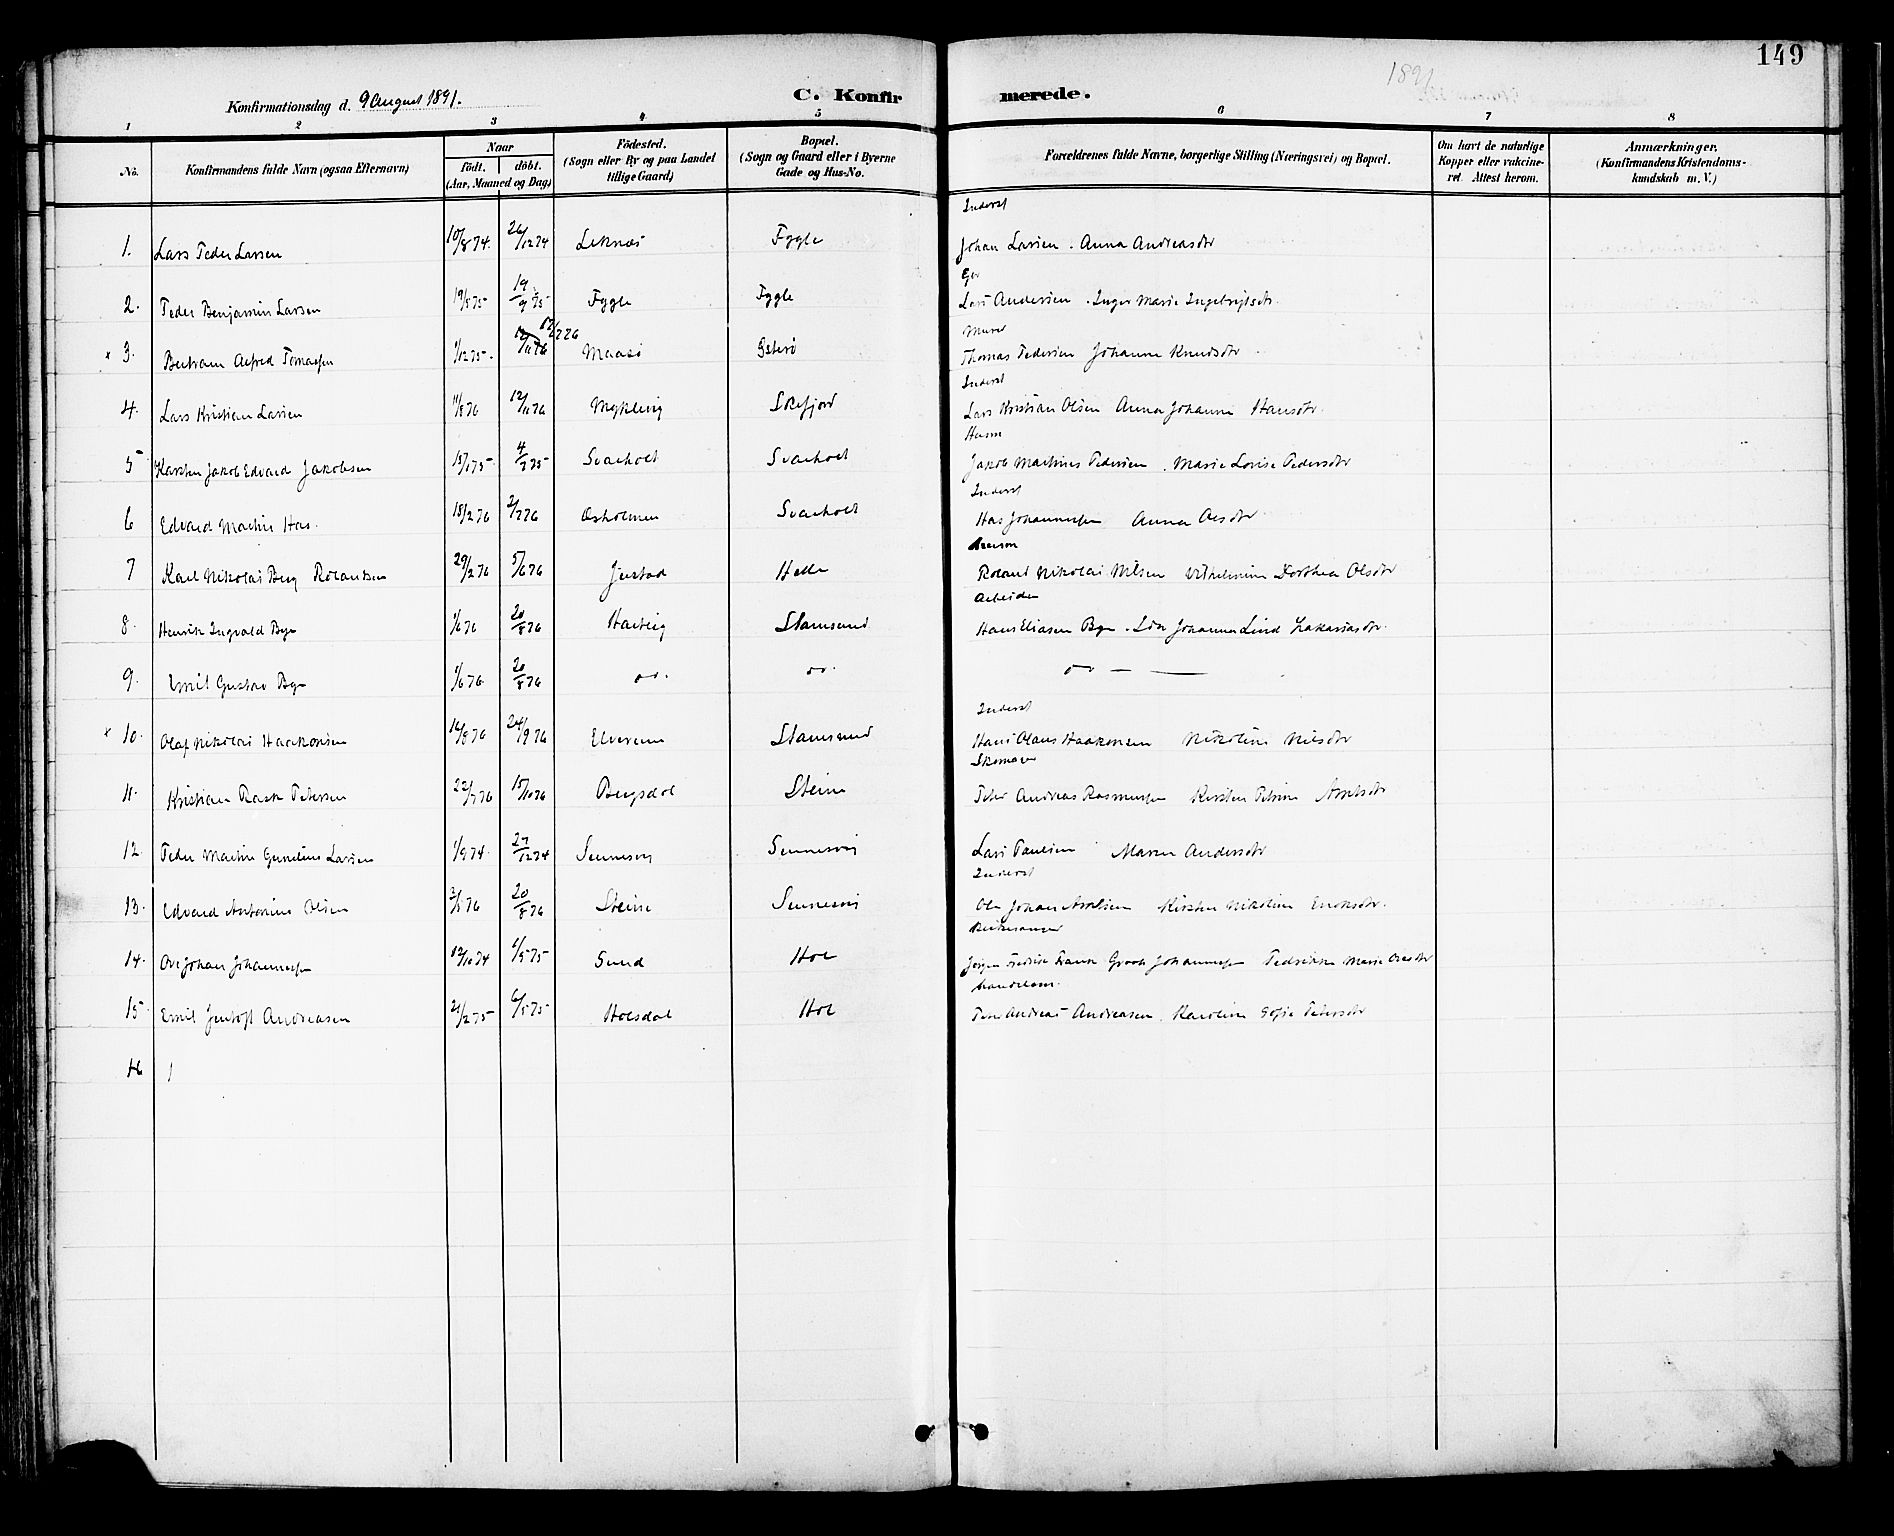 149
1891
Konfirmationsdag d. 9 August 1891.
C. Konfirmerede.
1 2 3 4 5 6 7 8
No. Konfirmandens fulde Navn (ogsaa Efternavn) Naar født. døbt. (Aar, Maaned og Dag) Fødested. (Sogn eller By og paa Landet tillige Gaard) Bopæl. (Sogn og Gaard eller i Byerne Gade og Hus-No. Forældrenes fulde Navne, borgerlige Stilling (Næringsvei) og Bopæl. Om havt de naturlige Kopper eller vaccineret. Attest herom. Anmærkninger. (Konfirmandens Kristendomskundskab m. V.)
Inderst
1. Lars Peder Larsen 10/8 74. 26/12 74 Leknæs Fygle Johan Larsen. Anna Andreasdtr
Ejer
2. Peder Benjamin Larsen 19/5 75 19/9 75 Fygle Fygle Lars Andersen. Inger Marie Ingebrigtsdtr.
x 3. Bertram Alfred Tomassen 1/12 75. 12/2 76 Maasø Thomas Pedersen Johanna Knudsdtr
Inderst
4. Lars Kristian Larsen 11/8 76 12/11 76 Myklevig Skifjord Lars Kristian Olsen Anna Johanna Hansdtr.
Husm
5 Karsten Jakob Edvard Jakobsen 15/1 75. 4/7 75 Svarholt Svarholt Jakob Martines Pedersen. Marie Lovise Pedersdtr
Inderst
6 Edvard Martin Has. 18/2 76 2/7 76 Svarholt Has Johannessen Anna Olsdtr
7 Karl Nikolai Berg Rolandsen 29/2 76 5/6 76 Justad Helle Roland Nikolai Nilsen Vilhelmine Dorthea Olsdtr
Arbeider
8. Henrik Ingvald Bye 1/6 76 20/8 76 Hartvig Stamsund Hans Eliasen Bye. Ida Johanna Lind Zakariasdtr.
9. Emil Gustav Bye 1/6 76 20/8 76 do. do. do — —
Inderst
x 10. Olaf Nikolai Haakonsen 16/8 76 24/9 76 Elverum Stamsund Hans Olaus Haakonsen Nikoline Nilsdtr
Skomager
11. Kristian Rask Petersen 22/7 76 15/10 76 Bergsdal Steine Peter Andreas Rasmussen Kirsten Petrine Arntsdtr
12. Peder Martin Gunelius Larsen 1/9 74. 27/12 74 Sennesvig Sennesvig Lars Paulsen Maren Andersdtr
Inderst
13. Edvard Antonius Olsen 3/5 76 20/8 76 Steine Sennesvig Ole Johan Arntsen Kirsten Nikoline Eriksdtr.
Kirkesanger
14. Ove Johan Johannessen 12/10 74 1/5 75 Sund Hol Jørgen Fredrik Frank Groth Johannessen Pedrikke Marie Olsdtr
Handelsm.
15. Emil Jentoft Andreasen 21/2 75 6/5 75 Holsdal Hol Peter Andreas Andreasen. Karoline Sofie Petersdtr
16